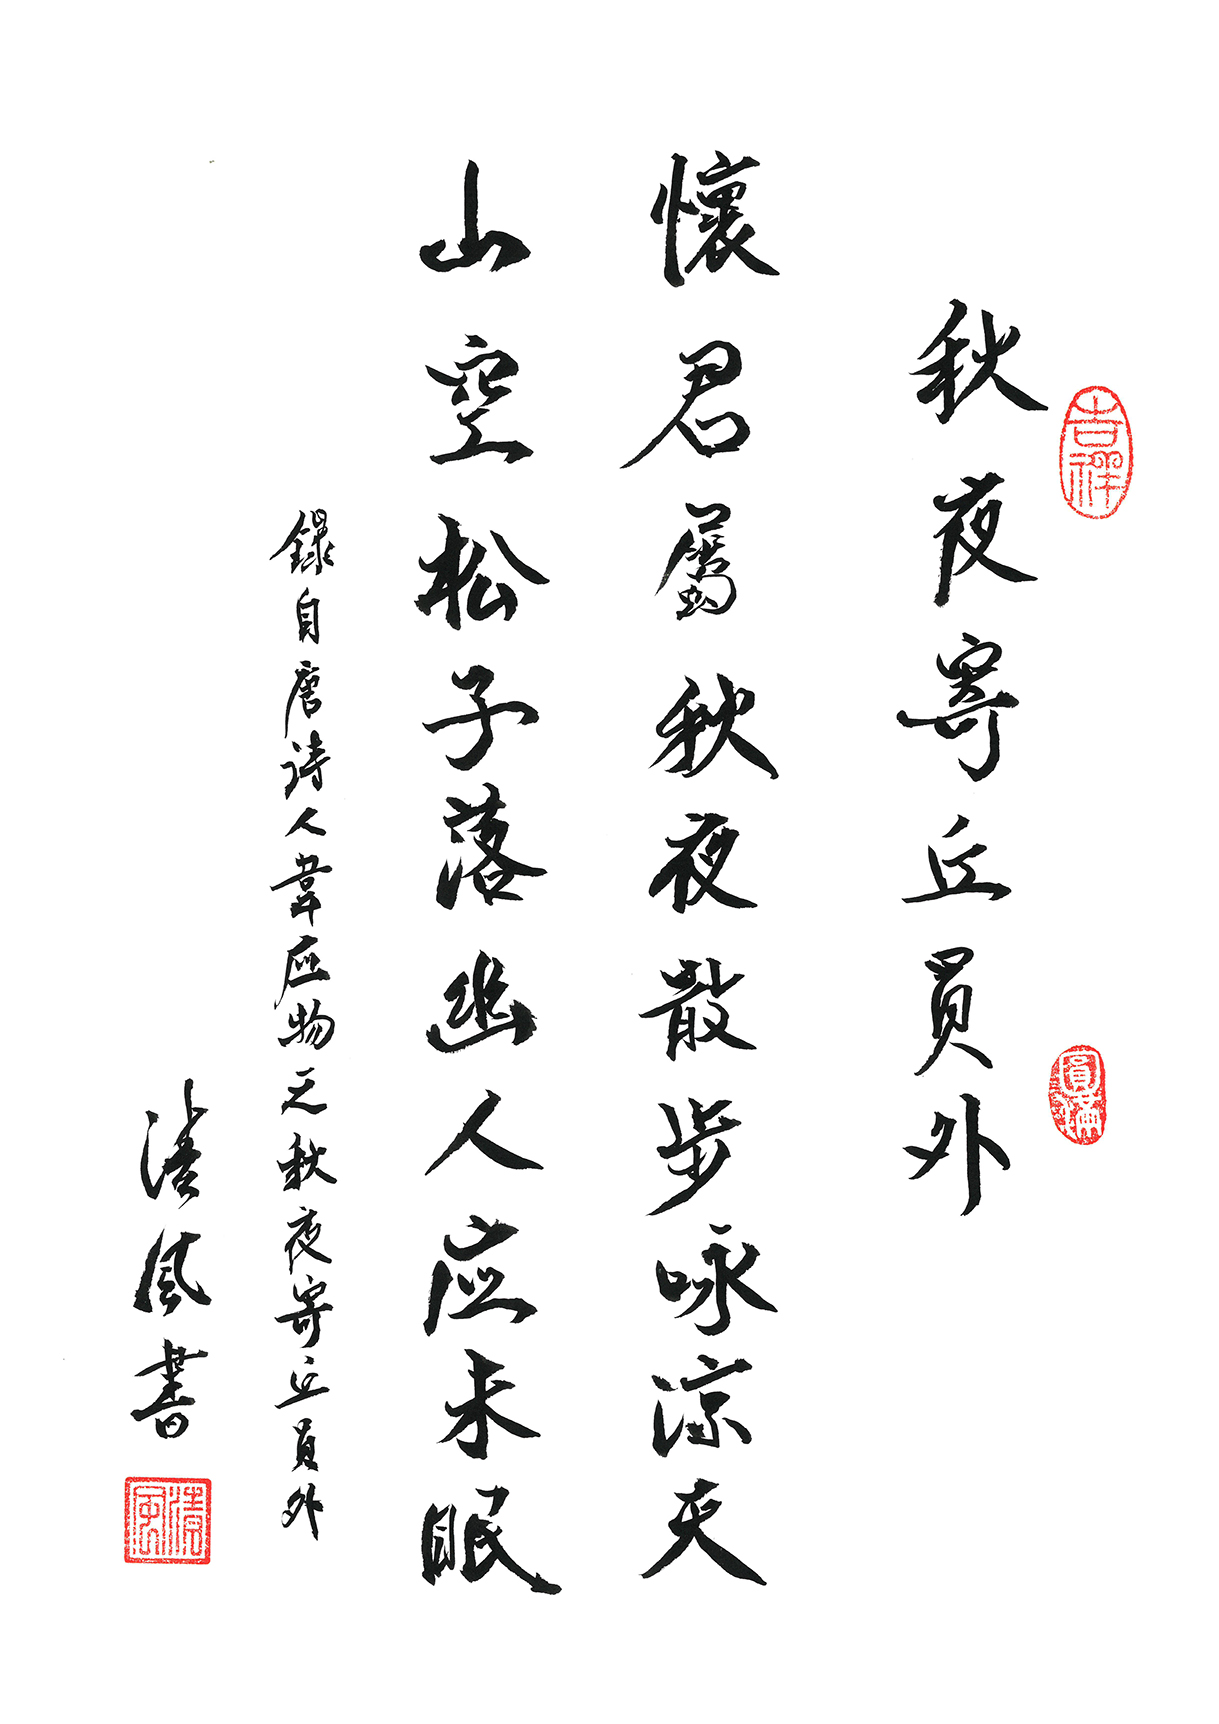 吉祥
圓滿
秋夜寄丘員外
懷君屬秋夜散步咏涼天
山空松子落幽人应未眠
錄自唐诗人韋应物之秋夜寄丘員外
清風書
清風